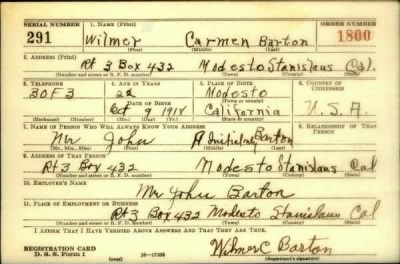 SERIAL NUMBER 1. NAME (Print) ORDER NUMBER
291 Wilmer Carmen Barton 1800
(First) (Middle) (Last)
2. ADDRESS (Print)
Rt 3 Box 432 Modesto Stanislaus Cal.
(Number and street or R. F. D. number) (Town) (County) (State)
3. TELEPHONE 4. AGE IN YEARS 5. PLACE OF BIRTH 6. COUNTRY OF CITIZENSHIP
30F3 22 Modesto
DATE OF BIRTH (Town or county)
Oct 9 1917 California U.S.A.
(Exchange) (Number) (Mo.) (Day) (Yr.) (State or country)
7. NAME OF PERSON WHO WILL ALWAYS KNOW YOUR ADDRESS 8. RELATIONSHIP OF THAT PERSON
Mr John Initial only Barton
(Mr., Mrs., Miss) (First) (Middle) (Last)
9. ADDRESS OF THAT PERSON
Rt 3 Box 432 Modesto Stanislaus Cal
(Number and street or R. F. D. number) (Town) (County) (State)
10. EMPLOYER'S NAME
Mr John Barton
11. PLACE OF EMPLOYMENT OR BUSINESS
Rt 3 Box 432 Modesto Stanislaus Cal
(Number and street or R. F. D. number) (Town) (County) (State)
I AFFIRM THAT I HAVE VERIFIED ABOVE ANSWERS AND THAT THEY ARE TRUE.
REGISTRATION CARD
D. S. S. Form 1 16—17105 Wilmer C Barton